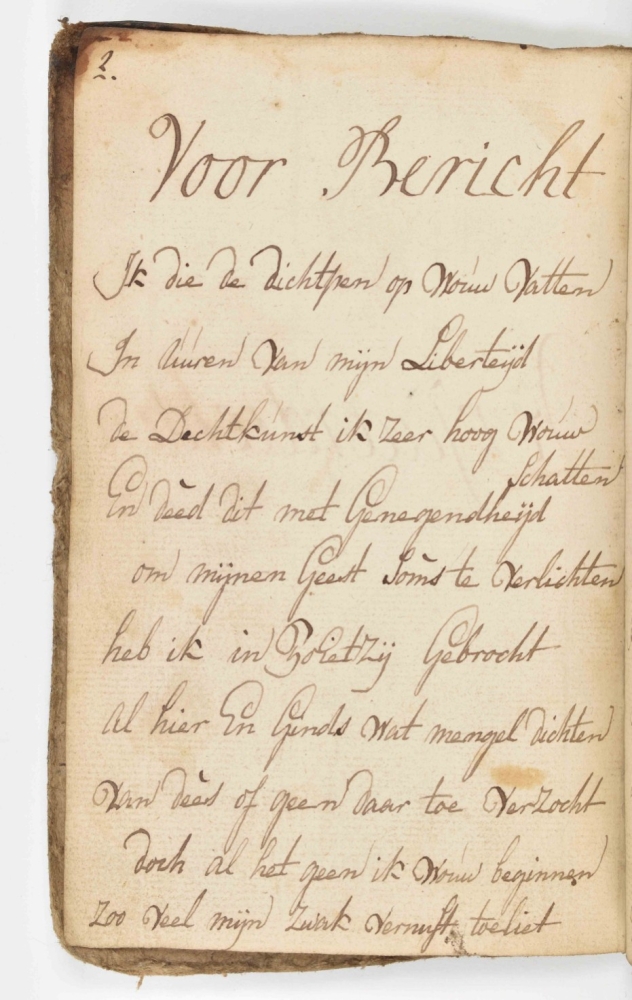 2.
Voor Bericht
Ik die de dichtpen op Wouw Vatten
In Uuren Van mijn Liberteijd
de Dechtkunst ik zeer hoog Wouw
Schatten
En deed dit met Genegendheijd
om mijnen Geest Soms te Verlichten
heb ik in PoietZij Gebrocht
al hier En Ginds wat mengel dichten
Van dees of geen daar toe VerZocht
doch al het geen ik Wouw beginnen
Zoo Veel mijn Zwak Vernuft toeliet